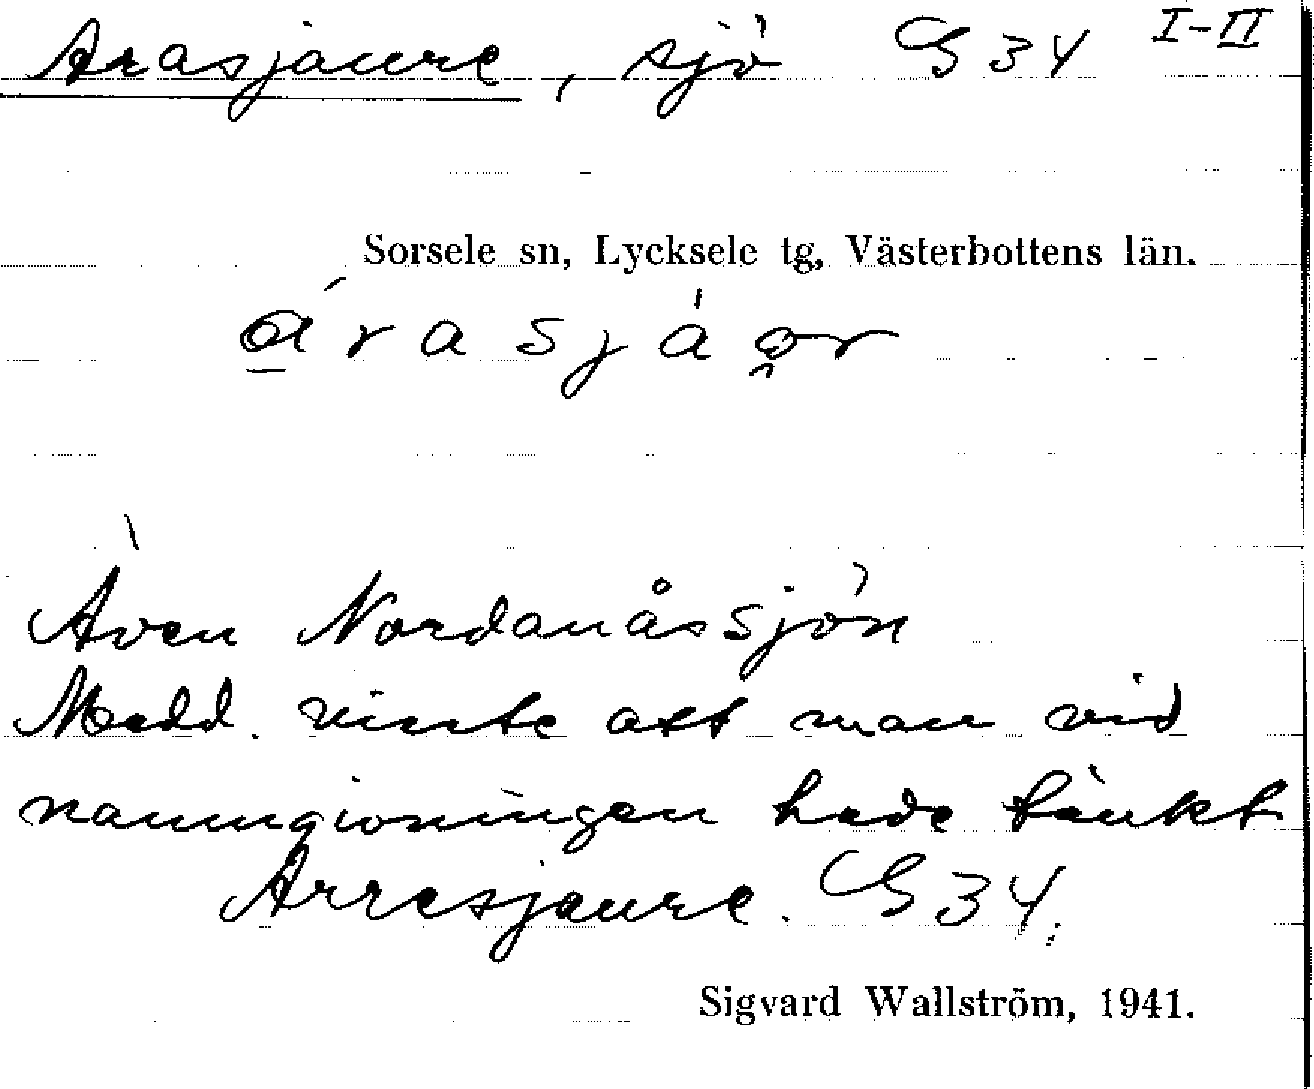 Arasjaure, sjö G34 I-II
Sorsele sn, Lycksele tg, Västerbottens län.
árasjáor
Även Nordanåssjön
Medd. visste att man vid
namngivningen hade tänkt
Arresjaure. G34.
Sigvard Wallström, 1941.